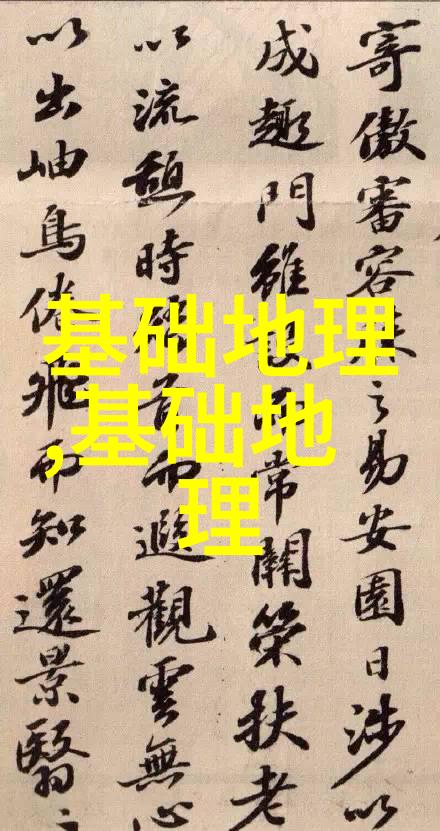 寄傲審容膝之易安園日涉以
成趣門雖設而常關策扶老
以流憩時矯首而遐觀雲無心
以出岫鳥倦飛而知還景翳〻
基础地理
,基础地
理